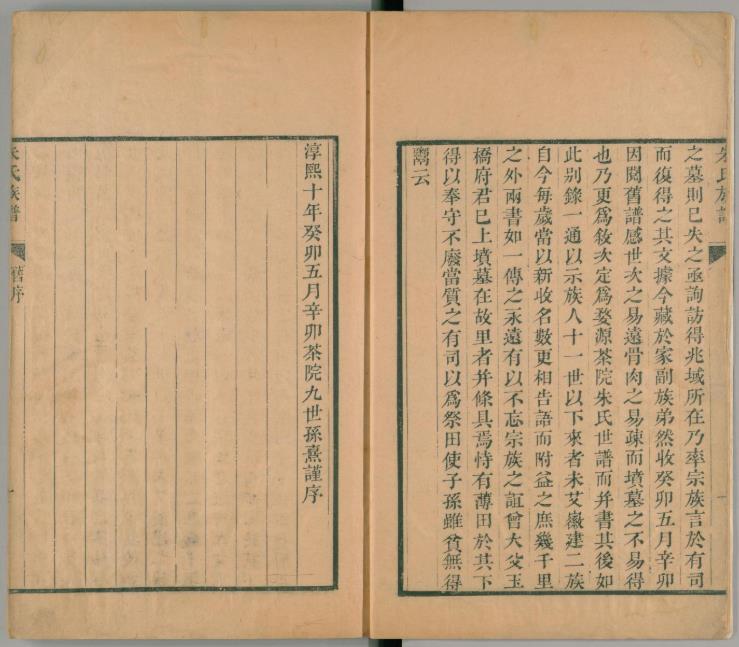 朱氏族譜
之墓則已失之亟詢訪得兆域所在乃率宗族言於有司
而復得之其文據今藏於家副族弟然收癸卯五月辛卯
因閱舊譜感世次之易遠骨肉之易疎而墳墓之不易得
也乃更爲敘次定爲婺源茶院朱氏世譜而并書其後如
此别錄一通以示族人十一世以下來者未艾徽建二族
自今每歲當以新收名數更相告語而附益之庶幾千里
之外兩書如一傳之永遠有以不忘宗族之誼曾大父王
橋府君已上墳墓在故里者并條具焉恃有薄田於其下
得以奉守不廢當質之有司以爲祭田使子孫雖貧無得
鬻云
淳熙十年癸卯五月辛卯茶院九世孫熹謹序
朱氏族譜
舊序